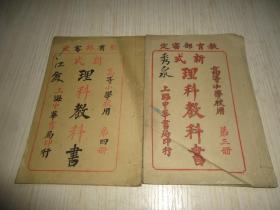 教育部審定
新式
理科教科書
高等小學校用
第三册
上海中華書局印行
教育部審定
新式
理科教科書
高等小學校用
第四册
上海中華書局印行